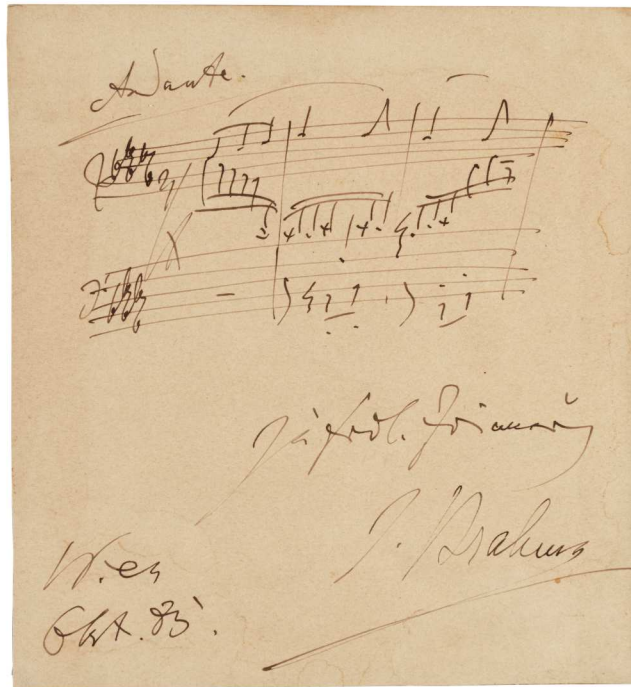 Andante.
zu frdl. Erinnerung
J. Brahms
Wien
Okt. 85.